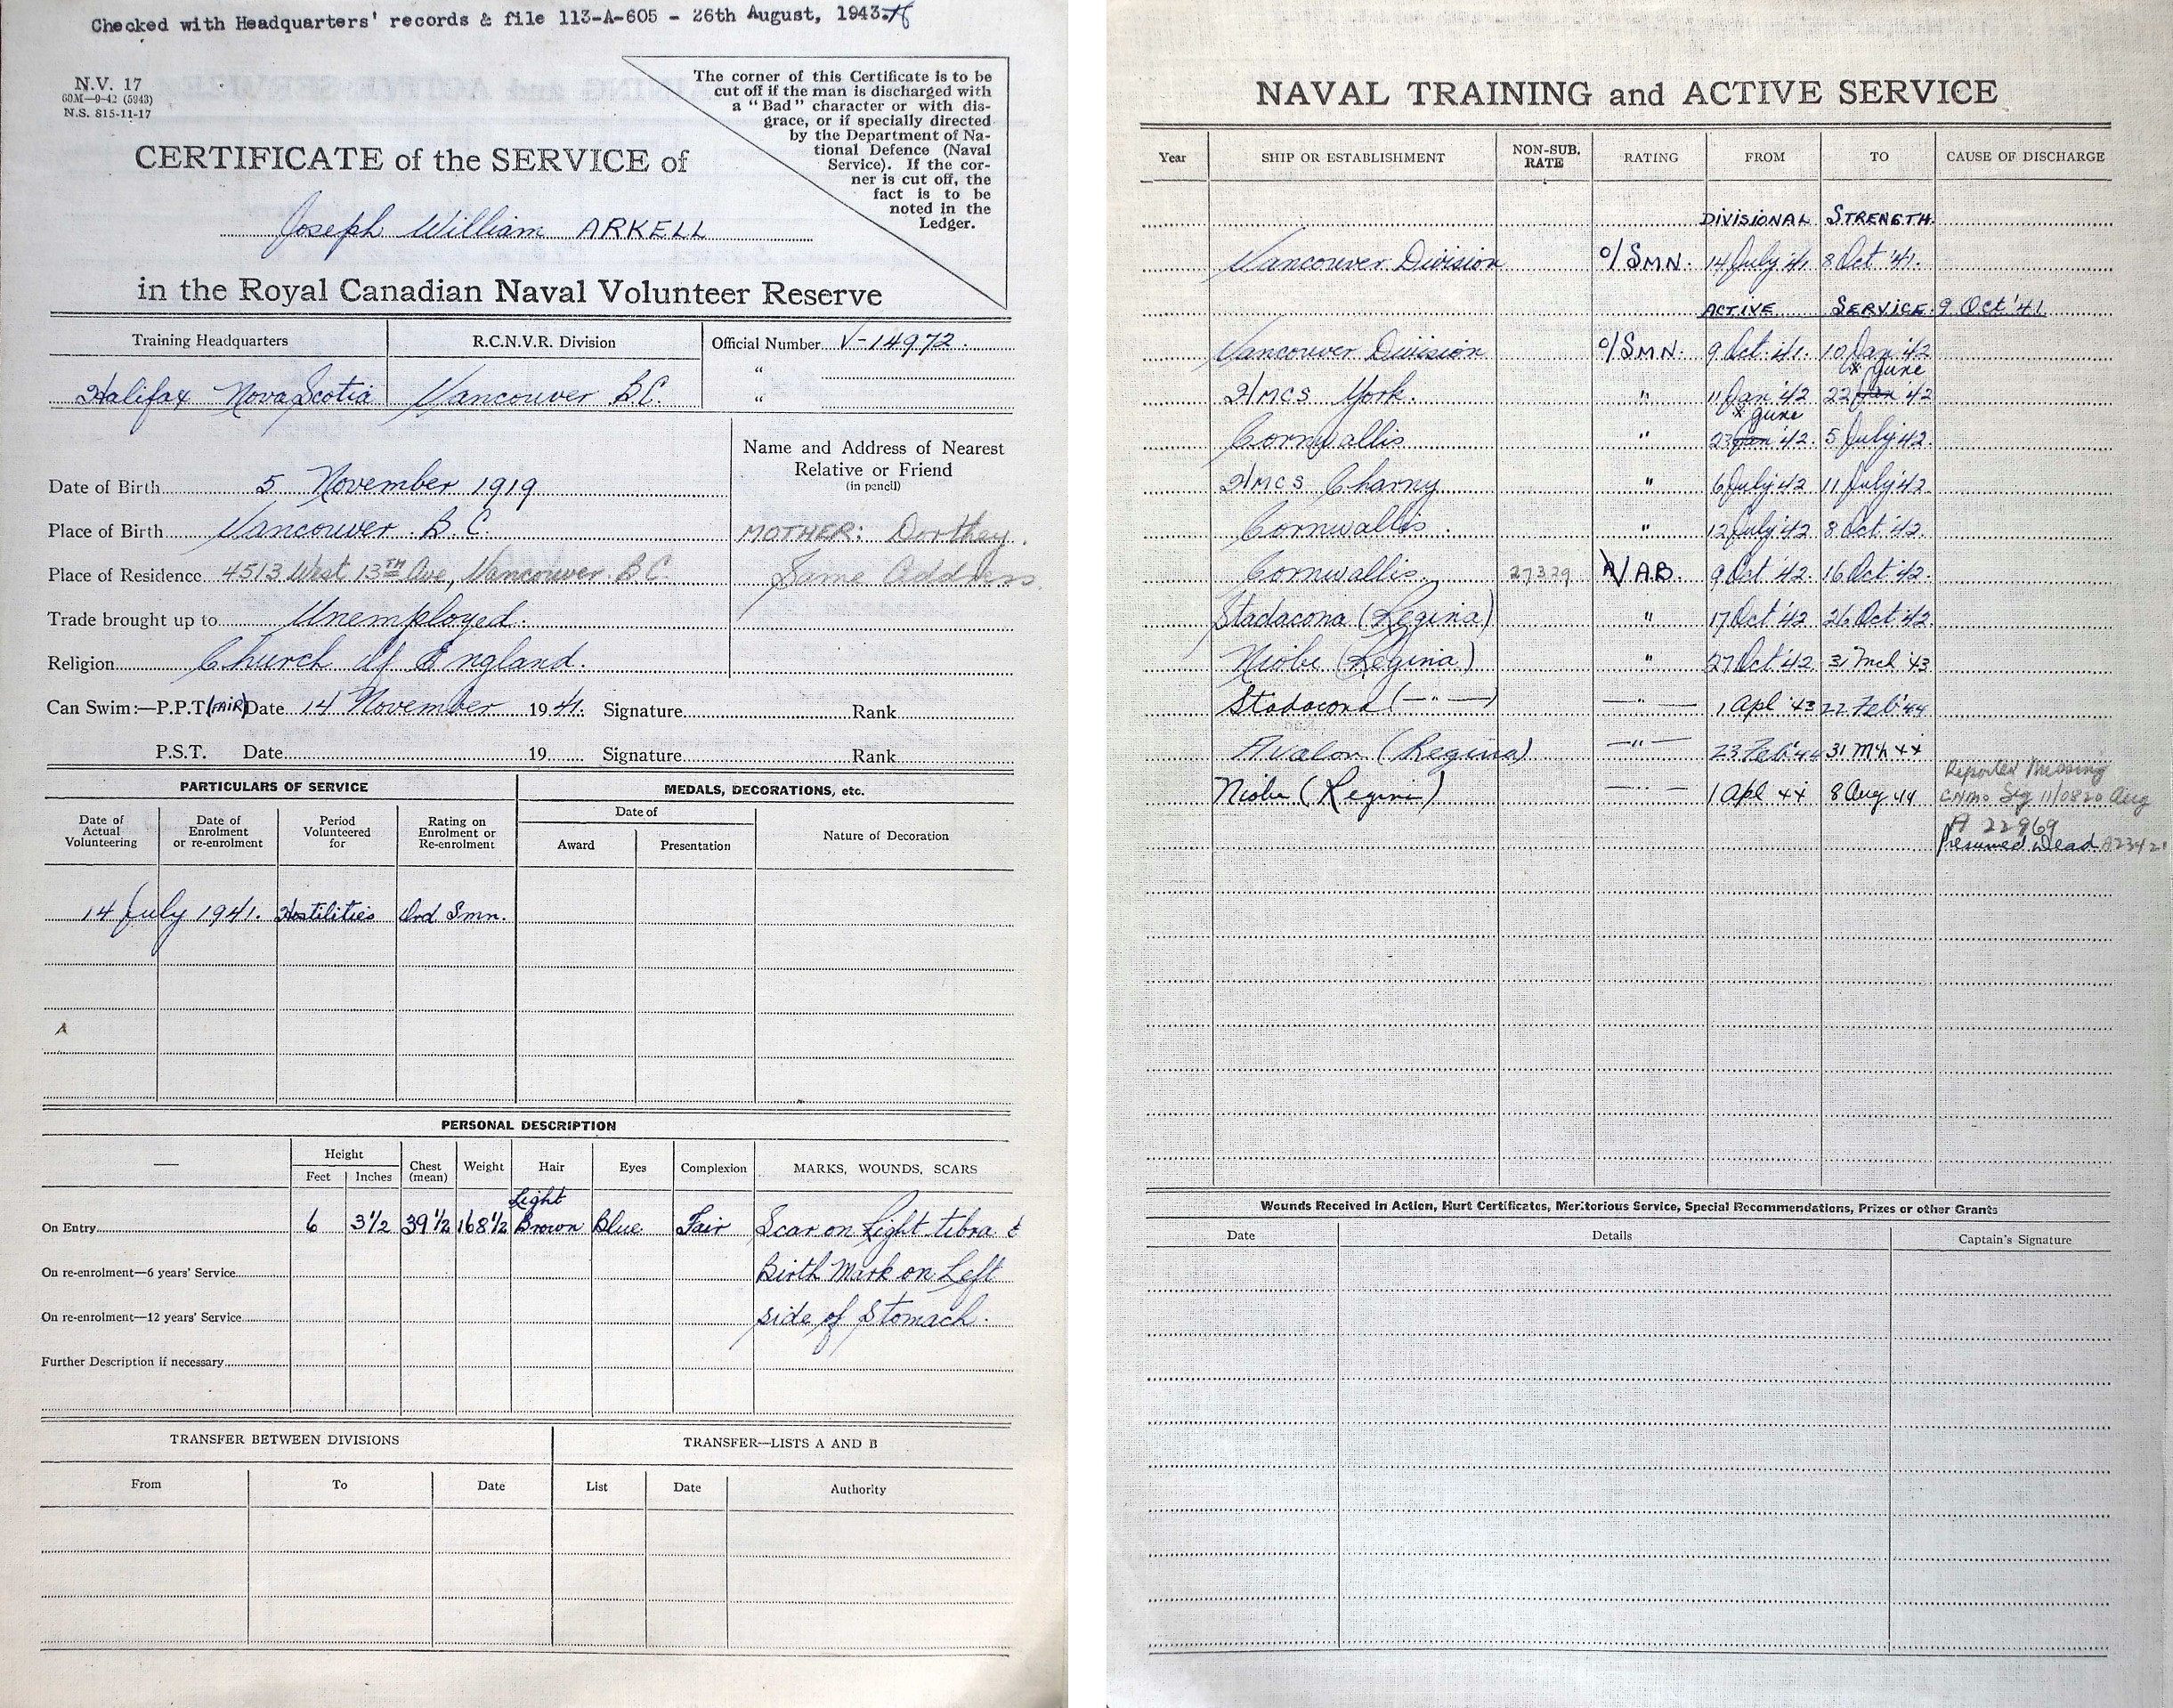 Checked with Headquarters' records & file 113-A-605 - 26th August, 1943.
N.V. 17
60M—9-42 (5943)
N.S. 815-11-17
The corner of this Certificate is to be
cut off if the man is discharged with
a "Bad" character or with dis-
grace, or if specially directed
by the Department of Na-
tional Defence (Naval
Service). If the cor-
ner is cut off, the
fact is to be
noted in the
Ledger.
CERTIFICATE of the SERVICE of
Joseph William ARKELL
in the Royal Canadian Naval Volunteer Reserve
Training Headquarters R.C.N.V.R. Division Official Number V-14972.
"
Halifax Nova Scotia Vancouver B.C. "
Name and Address of Nearest
Relative or Friend
(in pencil)
Date of Birth 5 November 1919
Place of Birth Vancouver B.C. MOTHER: Dorthey.
Place of Residence 4513 West 13TH Ave, Vancouver B.C. Same Address.
Trade brought up to Unemployed.
Religion Church of England.
Can Swim:—P.P.T. (FAIR) Date 14 November 1941. Signature Rank
P.S.T. Date 19 Signature Rank
PARTICULARS OF SERVICE MEDALS, DECORATIONS, etc.
Date of Actual Volunteering Date of Enrolment or re-enrolment Period Volunteered for Rating on Enrolment or Re-enrolment Date of Award Presentation Nature of Decoration
14 July 1941. Hostilities Ord Smn.
A
PERSONAL DESCRIPTION
— Height Feet Inches Chest (mean) Weight Hair Eyes Complexion MARKS, WOUNDS, SCARS
Light
On Entry 6 3½ 39½ 168½ Brown Blue Fair Scar on Right tibra &
On re-enrolment—6 years' Service Birth Mark on Left
On re-enrolment—12 years' Service side of Stomach.
Further Description if necessary
TRANSFER BETWEEN DIVISIONS TRANSFER—LISTS A AND B
From To Date List Date Authority
NAVAL TRAINING and ACTIVE SERVICE
Year SHIP OR ESTABLISHMENT NON-SUB. RATE RATING FROM TO CAUSE OF DISCHARGE
DIVISIONAL STRENGTH.
Vancouver Division O/SMN. 14 July '41 8 Oct '41.
ACTIVE SERVICE 9 Oct '41
Vancouver Division O/SMN. 9 Oct '41. 10 Jan '42
x June
HMCS York. " 11 Jan '42 22 Jan '42
x June
Cornwallis " 23 Jan '42. 5 July '42.
HMCS Charny " 6 July '42 11 July '42.
Cornwallis. " 12 July '42 8 Oct '42.
Cornwallis. 27329 A/AB. 9 Oct '42. 16 Oct '42.
Stadacona (Regina) " 17 Oct '42 26 Oct '42.
Niobe (Regina) " 27 Oct '42 31 Mch '43
Stadacona (—"—) —"— 1 Apl '43 22 Feb '44
Avalon (Regina) —"— 23 Feb '44 31 Mch 44
Reported Missing
Niobe (Regina) —"— 1 Apl 44 8 Aug 44 CNMO Sig 11/0820 Aug
A 22969
Presumed Dead
Wounds Received in Action, Hurt Certificates, Meritorious Service, Special Recommendations, Prizes or other Grants
Date Details Captain's Signature